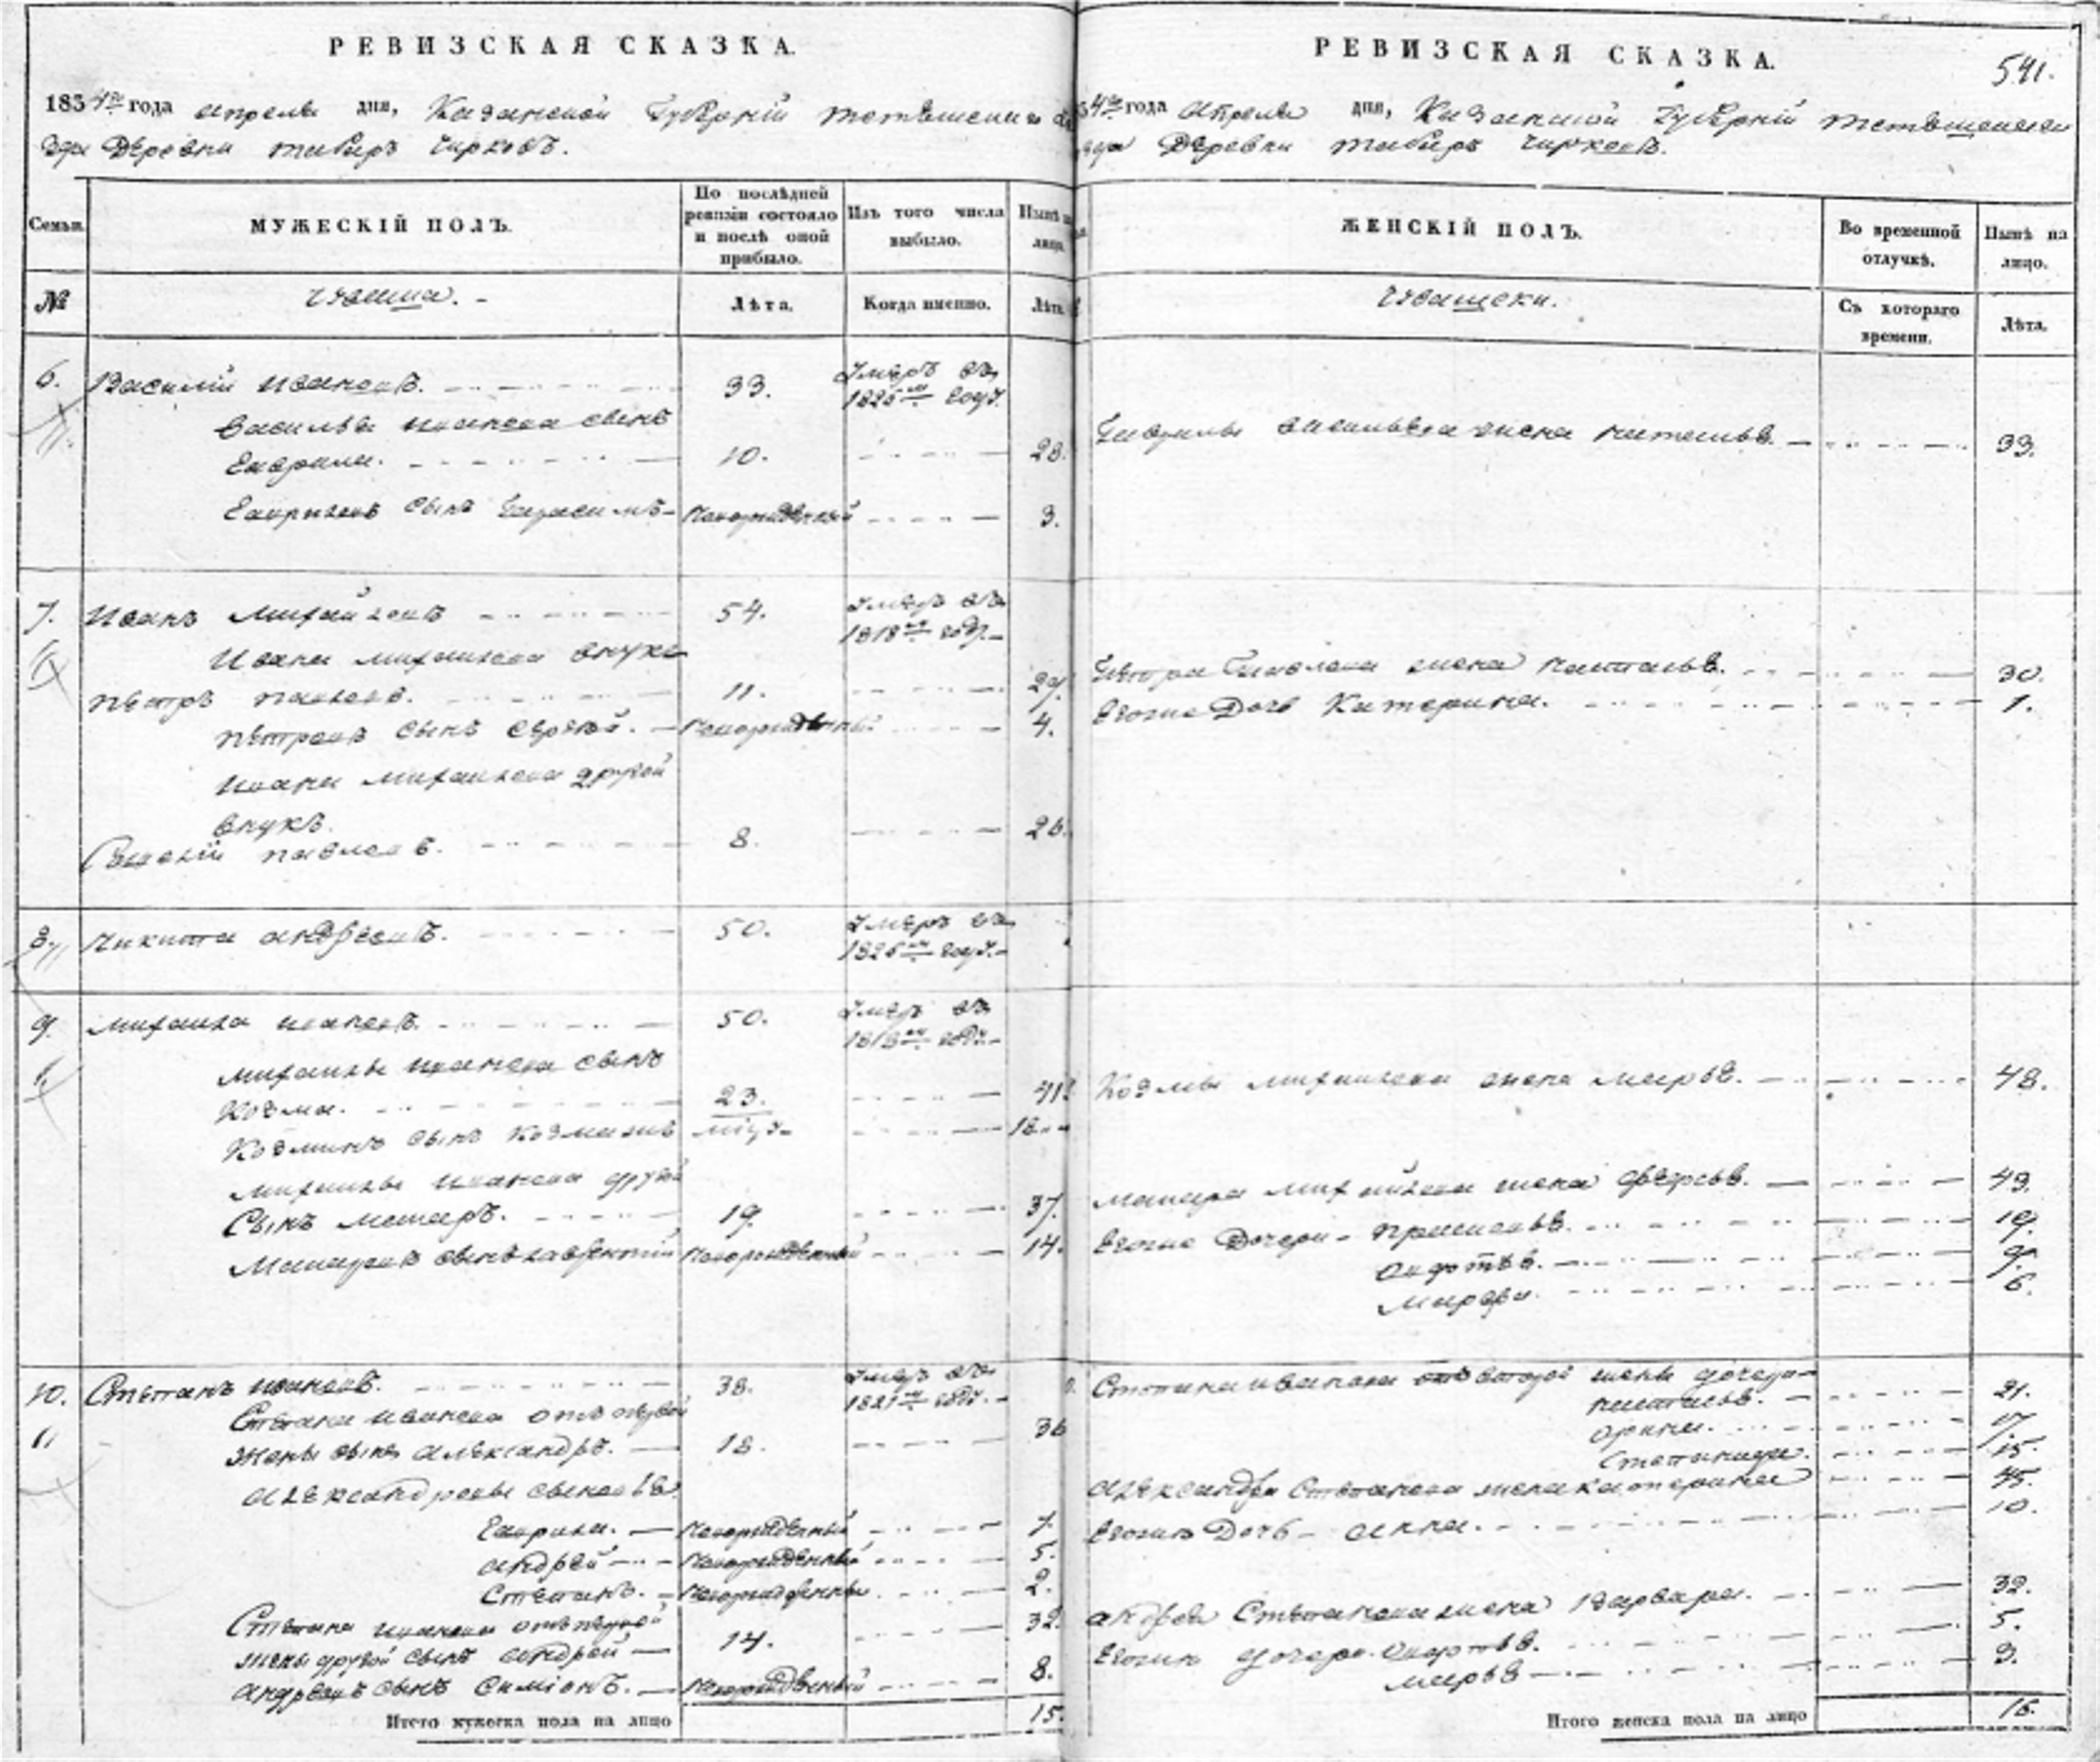 РЕВИЗСКАЯ СКАЗКА.
1834го года апреля дня, Казанской Губерніи
Деревни Табаръ Чирковъ.
Семьи.
МУЖЕСКІЙ ПОЛЪ.
По послѣдней ревизіи состояло и послѣ оной прибыло.
Изъ того числа выбыло.
Нынѣ на лицо.
№
Чуваша.
Лѣта.
Когда именно.
Лѣта.
6. Василій Ивановъ. 33. Умеръ въ
1826м году.
Василья Иванова сынъ
Гаврила. 10. 28.
Гавриловъ сынъ Герасимъ новорожденный 3.
7. Иванъ Михайловъ 54. Умеръ въ
1818м году.
Ивана Михайлова внукъ
Петръ Павловъ. 11. 29.
Петровъ сынъ Сергей. новорожденный 4.
Ивана Михайлова другой
внукъ.
Павловъ. 8. 26.
8. Никита Андреевъ. 50. Умеръ въ
1826м году.
9. Михайла Ивановъ. 50. Умеръ въ
году.
Михайлы Иванова сынъ
Козма. 23. 41.
Козминъ сынъ 18
Михайлы Иванова другой
Сынъ Макаръ. 19. 37.
Макаровъ сынъ Лаврентий новорожденный 14.
10. Степанъ Ивановъ. 38. Умеръ въ
1821м году.
Степана Иванова отъ первой
жены сынъ Александръ. 18. 36
Александровы сыновья.
Гаврила. новорожденный 7.
Андрей новорожденный 5.
Степанъ. новорожденный 2.
Степана Иванова отъ первой
жены другой сынъ Андрей 14. 32.
Андреевъ сынъ Симіонъ. новорожденный 8.
Итого мужеска пола на лицо 15.
РЕВИЗСКАЯ СКАЗКА.
541.
4го года Апреля дня, Казанской Губерніи
Деревни Табаръ Чирковъ.
ЖЕНСКІЙ ПОЛЪ.
Во временной отлучкѣ.
Нынѣ на лицо.
Чувашски.
Съ котораго времени.
Лѣта.
Гаврилы Васильева жена Наталья 33.
Петра Павлова жена Наталья. 30.
Егоже Дочь Катерина. 1.
Козмы Михайлова жена Марья. 48.
Макара Михайлова жена 43.
Егоже Дочери 19.
9.
6.
Степана Иванова отъ второй жены дочери
Наталья. 21.
Орина. 17.
Степанида. 15.
Александра Степанова жена Катерина 45.
Егожъ Дочь Анна. 10.
Андрея Степанова жена Варвара. 32.
Егожъ дочери 5.
Марья 3.
Итого женска пола на лицо 16.